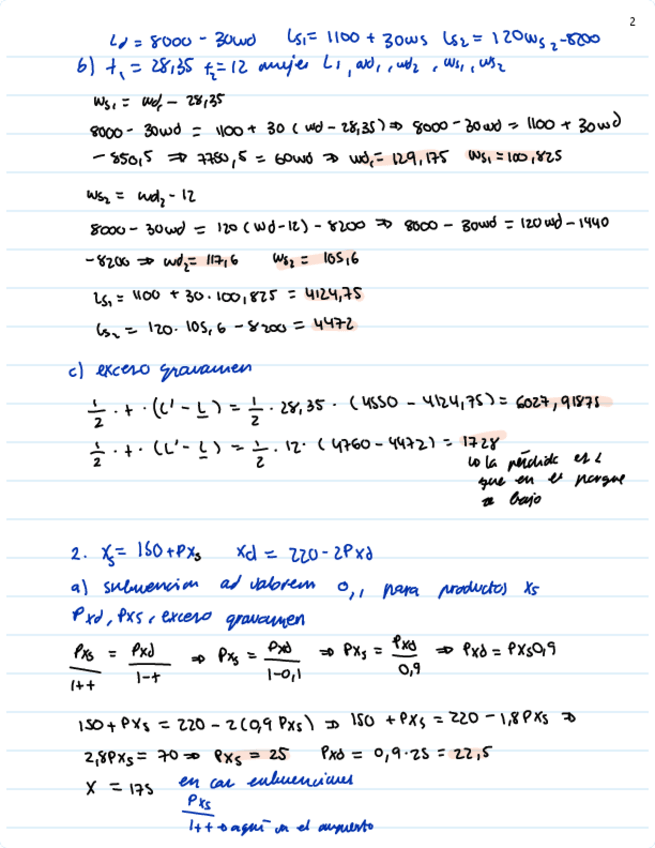 2
Ld = 8000 - 30wd   Ls1 = 1100 + 30ws   Ls2 = 120ws2 - 8200
b) t1 = 28,35   t2 = 12   mujer   L1, wd1, wd2, ws1, ws2
ws1 = wd1 - 28,35
8000 - 30wd = 1100 + 30 (wd - 28,35) ⇒ 8000 - 30wd = 1100 + 30wd
- 850,5 ⇒ 7750,5 = 60wd ⇒ wd1 = 129,175   ws1 = 100,825
ws2 = wd2 - 12
8000 - 30wd = 120 (wd - 12) - 8200 ⇒ 8000 - 30wd = 120wd - 1440
- 8200 ⇒ wd2 = 117,6   ws2 = 105,6
Ls1 = 1100 + 30 · 100,825 = 4124,75
Ls2 = 120 · 105,6 - 8200 = 4472
c) exceso gravamen
1/2 · t · (L' - L) = 1/2 · 28,35 · (4550 - 4124,75) = 6027,91875
1/2 · t · (L' - L) = 1/2 · 12 · (4760 - 4472) = 1728
la pérdida es
que en el porque
bajo
2. Xs = 150 + Pxs   Xd = 220 - 2Pxd
a) subvencion ad valorem 0,1 para productos Xs
Pxd, Pxs, exceso gravamen
Pxs/1+t = Pxd/1-t ⇒ Pxs = Pxd/1-0,1 ⇒ Pxs = Pxd/0,9 ⇒ Pxd = Pxs0,9
150 + Pxs = 220 - 2(0,9 Pxs) ⇒ 150 + Pxs = 220 - 1,8Pxs ⇒
2,8Pxs = 70 ⇒ Pxs = 25   Pxd = 0,9·25 = 22,5
X = 175   en las subvenciones
Pxs
1+t → aquí en el impuesto